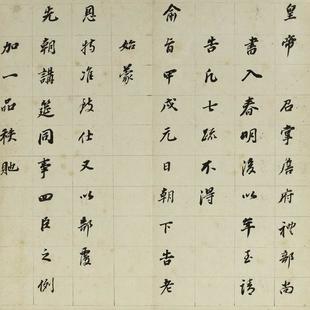 皇帝召掌詹府礼部尚
書入春明後以年至請
告凡七疏不得
俞旨甲戌元日朝下告老
始蒙
恩特准致仕又以部覆
先朝講筵同事四臣之例
加一品秩貤